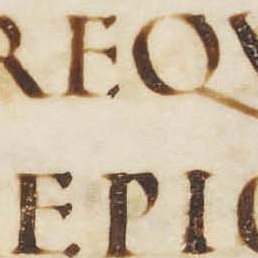 REQV
EPIC